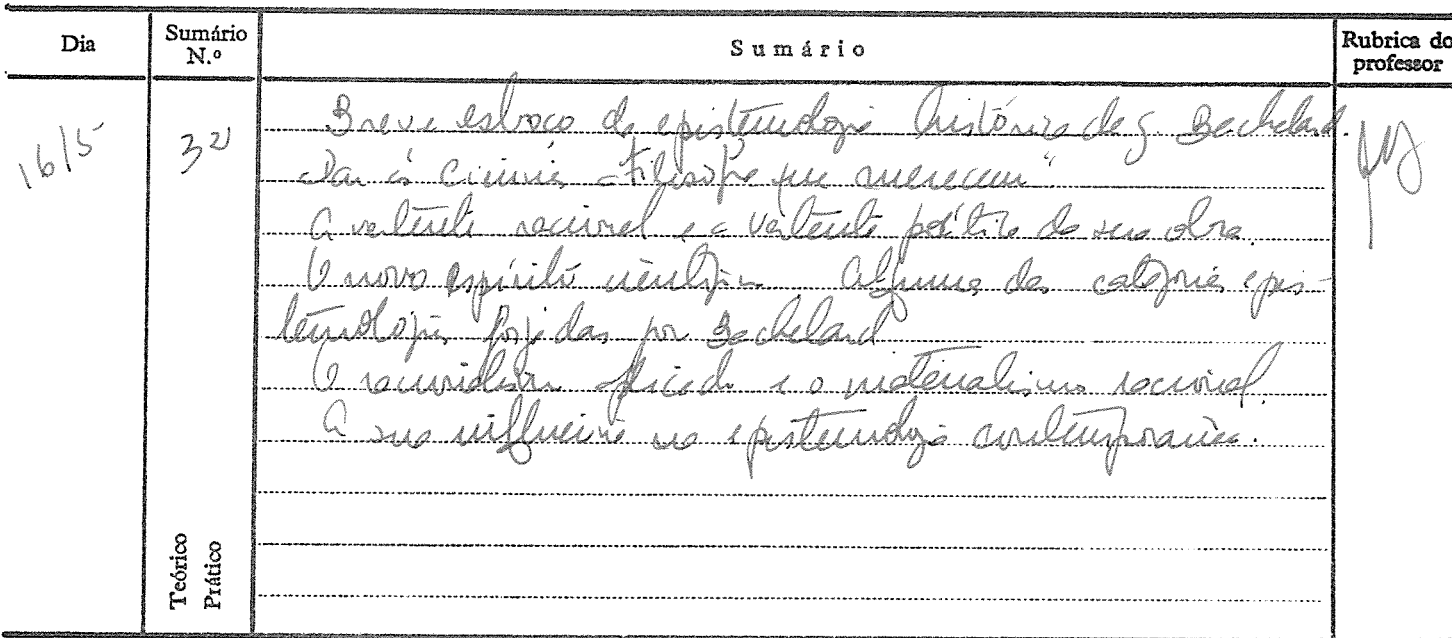 Dia Sumário N.º Sumário Rubrica do professor
16/5 32
Breve esboço da epistemologia histórica de G. Bachelard.
"Dar às ciências a filosofia que merecem"
A vertente racional e a vertente poética da sua obra.
O novo espírito científico. Algumas das categorias epis-
temológicas forjidas por Bachelard
O racionalismo aplicado e o materialismo racional.
A sua influência na epistemologia contemporânea.
Teórico
Prático